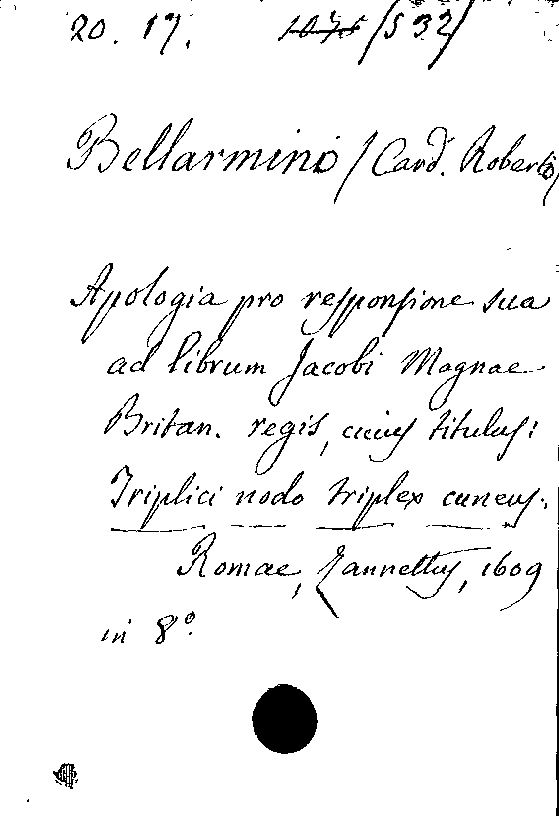 20. 17. 1075 /S 32/
Bellarmino /Card. Roberto/
Apologia pro responsione sua
ad librum Jacobi Magnae
Britan. regis, cuius titulus:
Triplici nodo triplex cuneus.
Romae, Zannettus, 1609
in 8º.